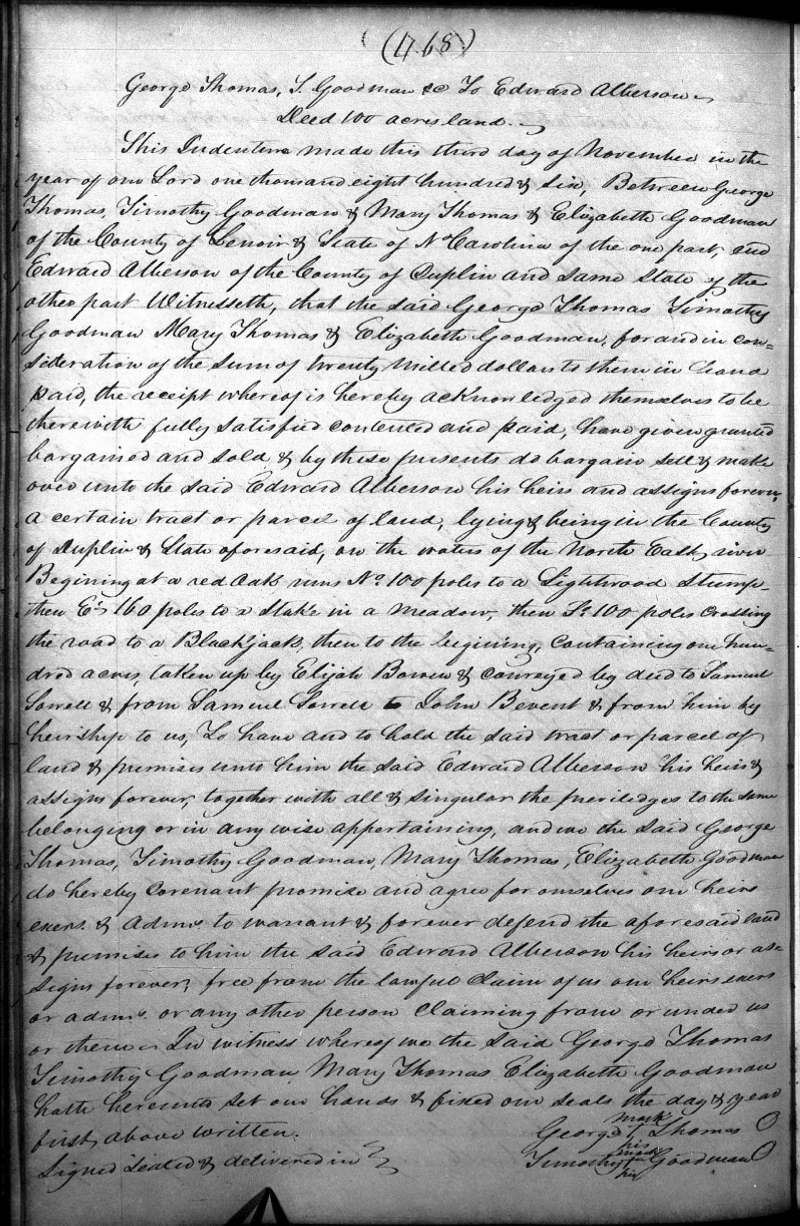 (468)
George Thomas, T. Goodman &c To Edward Alberson
Deed 100 acres land.
This Indenture made this third day of November in the
year of our Lord one thousand eight hundred & six, Between George
Thomas, Timothy Goodman & Mary Thomas & Elizabeth Goodman
of the County of Lenoir & State of N Carolina of the one part, and
Edward Alberson of the County of Duplin and same State of the
other part Witnesseth, that the said George Thomas Timothy
Goodman Mary Thomas & Elizabeth Goodman, for and in con=
sideration of the sum of twenty milled dollars to them in hand
paid, the receipt whereof is hereby acknowledged themselves to be
therewith fully satisfied contented and paid, have given granted
bargained and sold & by these presents do bargain sell & make
over unto the said Edward Alberson his heirs and assigns forever,
a certain tract or parcel of land, lying & being in the County
of Duplin & State aforesaid, on the waters of the North East river
Begining at a red Oak runs No. 100 poles to a Lightwood Stump
then Et. 160 poles to a Stake in a meadow, then So. 100 poles crossing
the road to a Blackjack, then to the begining, Containing one hun=
dred acres, taken up by Elijah Bowen & conveyed by deed to Samuel
Sowell & from Samuel Sowell to John Bevent & from him by
heirship to us, To have and to hold the said tract or parcel of
land & premises unto him the said Edward Alberson his heirs &
assigns forever, together with all & singular the priviledges to the same
belonging or in any wise appertaining, and we the said George
Thomas, Timothy Goodman, Mary Thomas, Elizabeth Goodman
do hereby covenant promise and agree for ourselves our heirs
exers. & admrs. to warrant & forever defend the aforesaid land
& premises to him the said Edward Alberson his heirs or as
signs forever, free from the lawful claim of us our heirs exers
or admrs. or any other person claiming from or under us
or them In witness whereof we the said George Thomas
Timothy Goodman Mary Thomas Elizabeth Goodman
hath hereunto set our hands & fixed our seals the day & year
first above written.
mark
George Thomas
his
mark
Timothy Goodman
Signed Sealed & delivered in